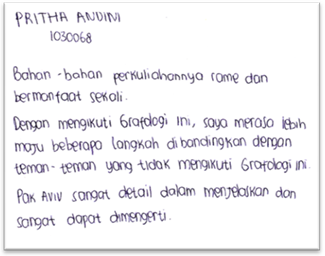 PRITHA ANDINI
1030068
Bahan - bahan perkuliahannya rame dan
bermanfaat sekali.
Dengan mengikuti Grafologi Ini, saya merasa lebih
maju beberapa langkah dibandingkan dengan
teman - teman yang tidak mengikuti Grafologi Ini.
Pak Aviv sangat detail dalam menjelaskan dan
sangat dapat dimengerti.